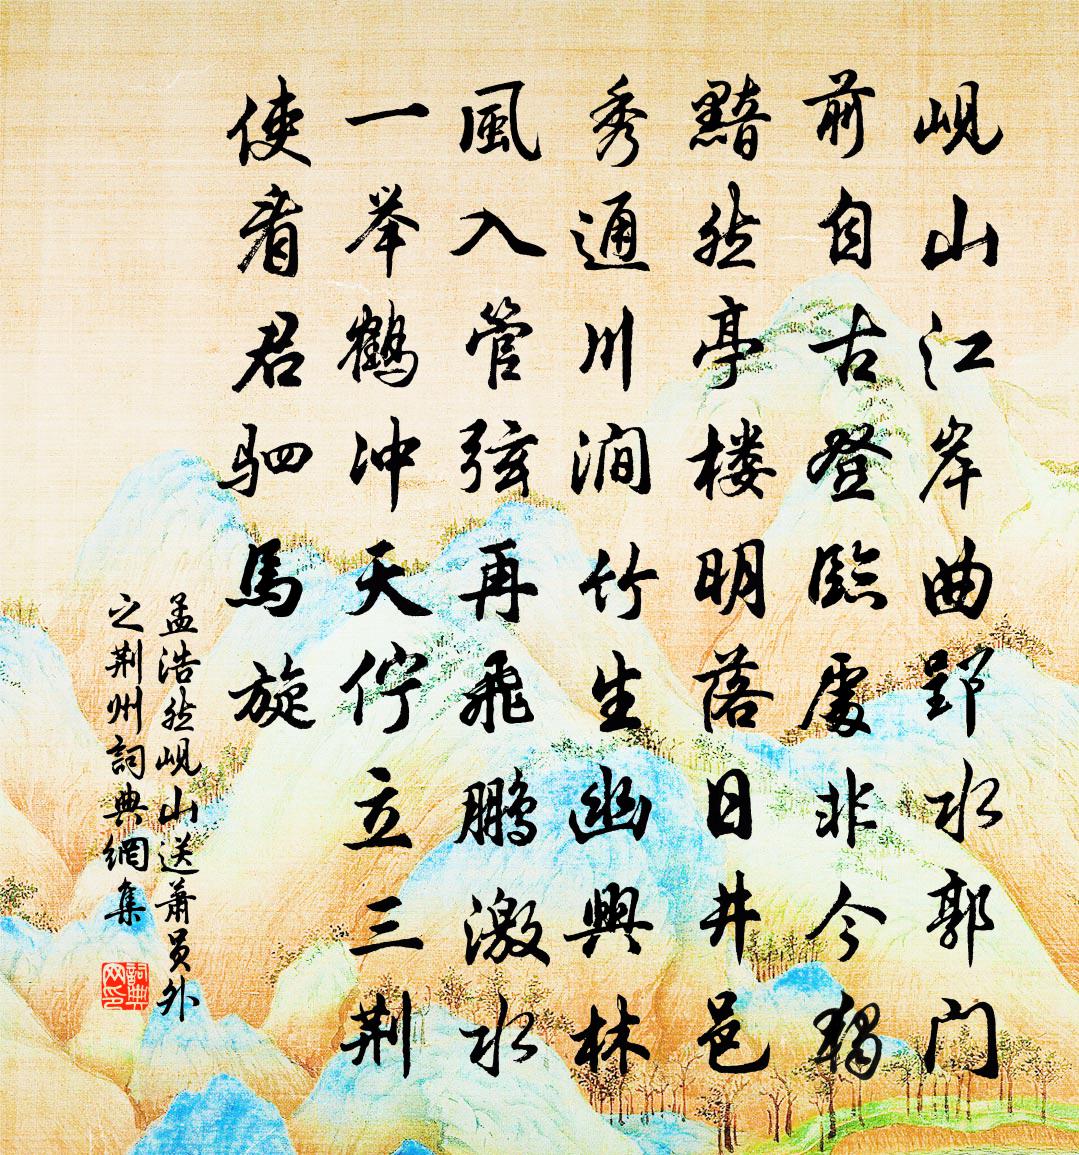 岘山江岸曲郢水郭门
前自古登臨處非今獨
黯然亭楼明落日井邑
秀通川涧竹生幽興林
風入管弦再飛鹏激水
一举鹤冲天佇立三荆
使看君驷馬旋
孟浩然岘山送蕭员外
之荆州詞典網集
詞典网印